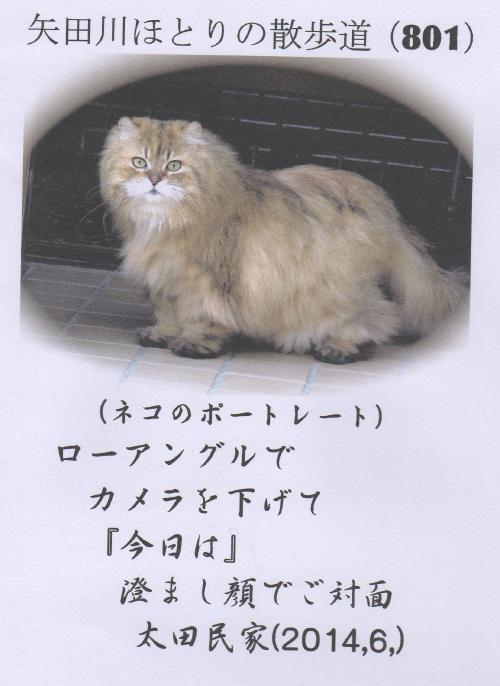 矢田川ほとりの散歩道 (801)
(ネコのポートレート)
ローアングルで
カメラを下げて
『今日は』
澄まし顔でご対面
太田民家(2014,6,)